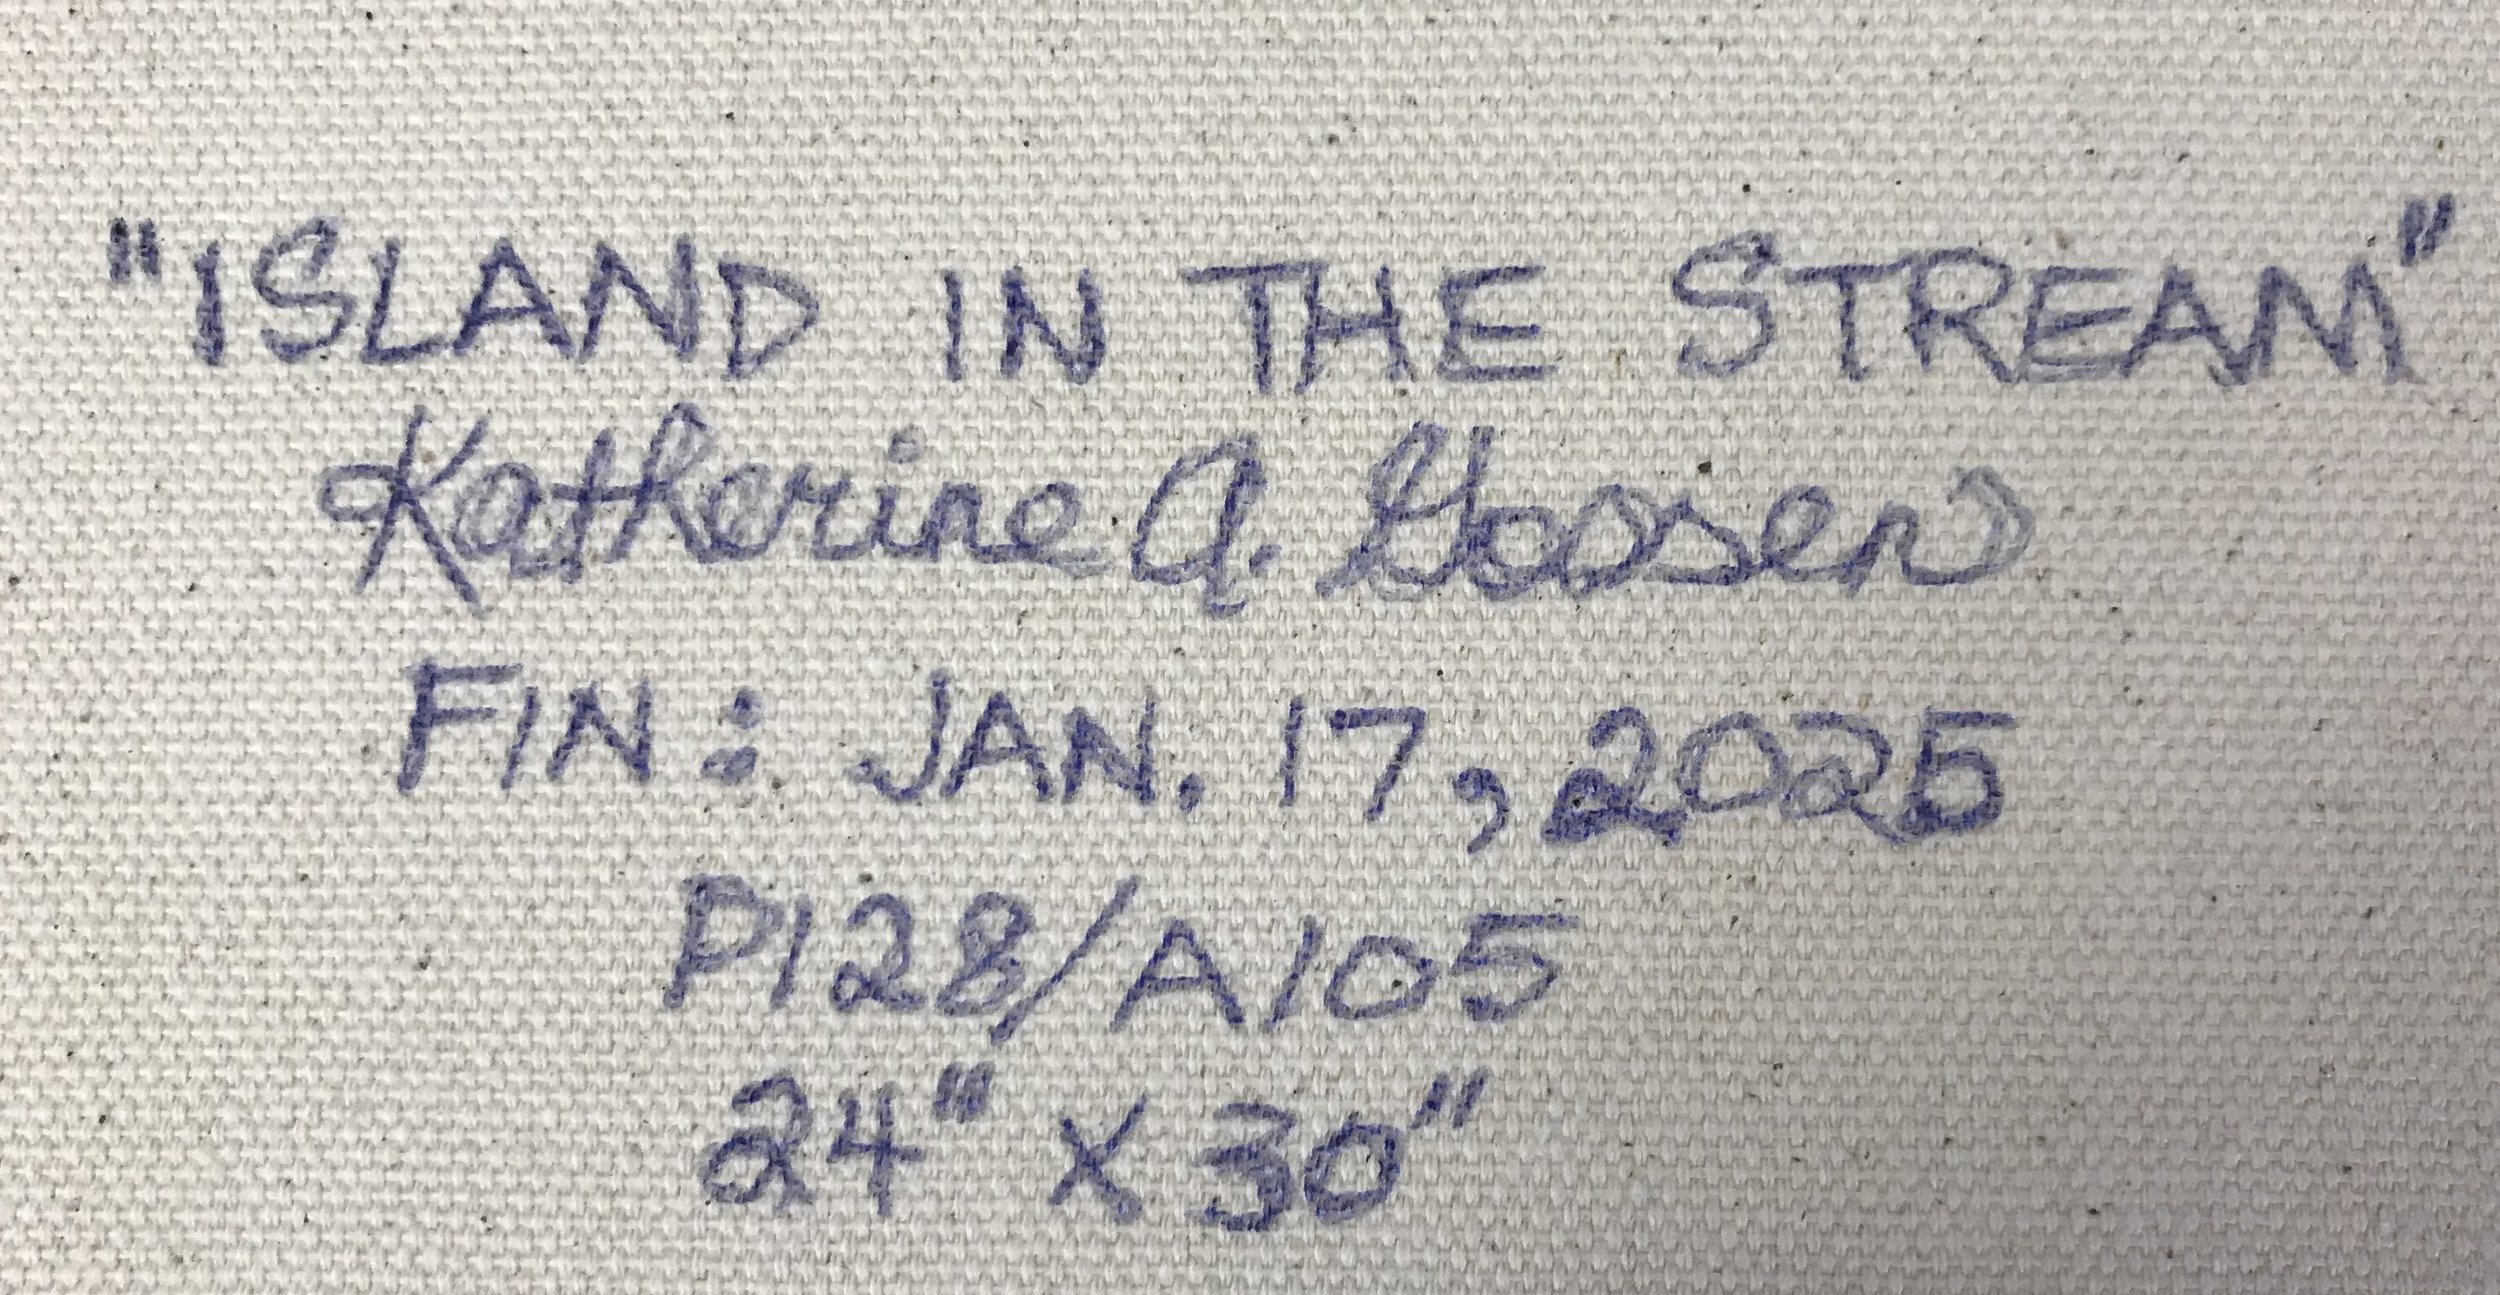 "ISLAND IN THE STREAM"
Katherine A. Goosen
FIN: JAN. 17, 2025
P128/A105
24" X 30"